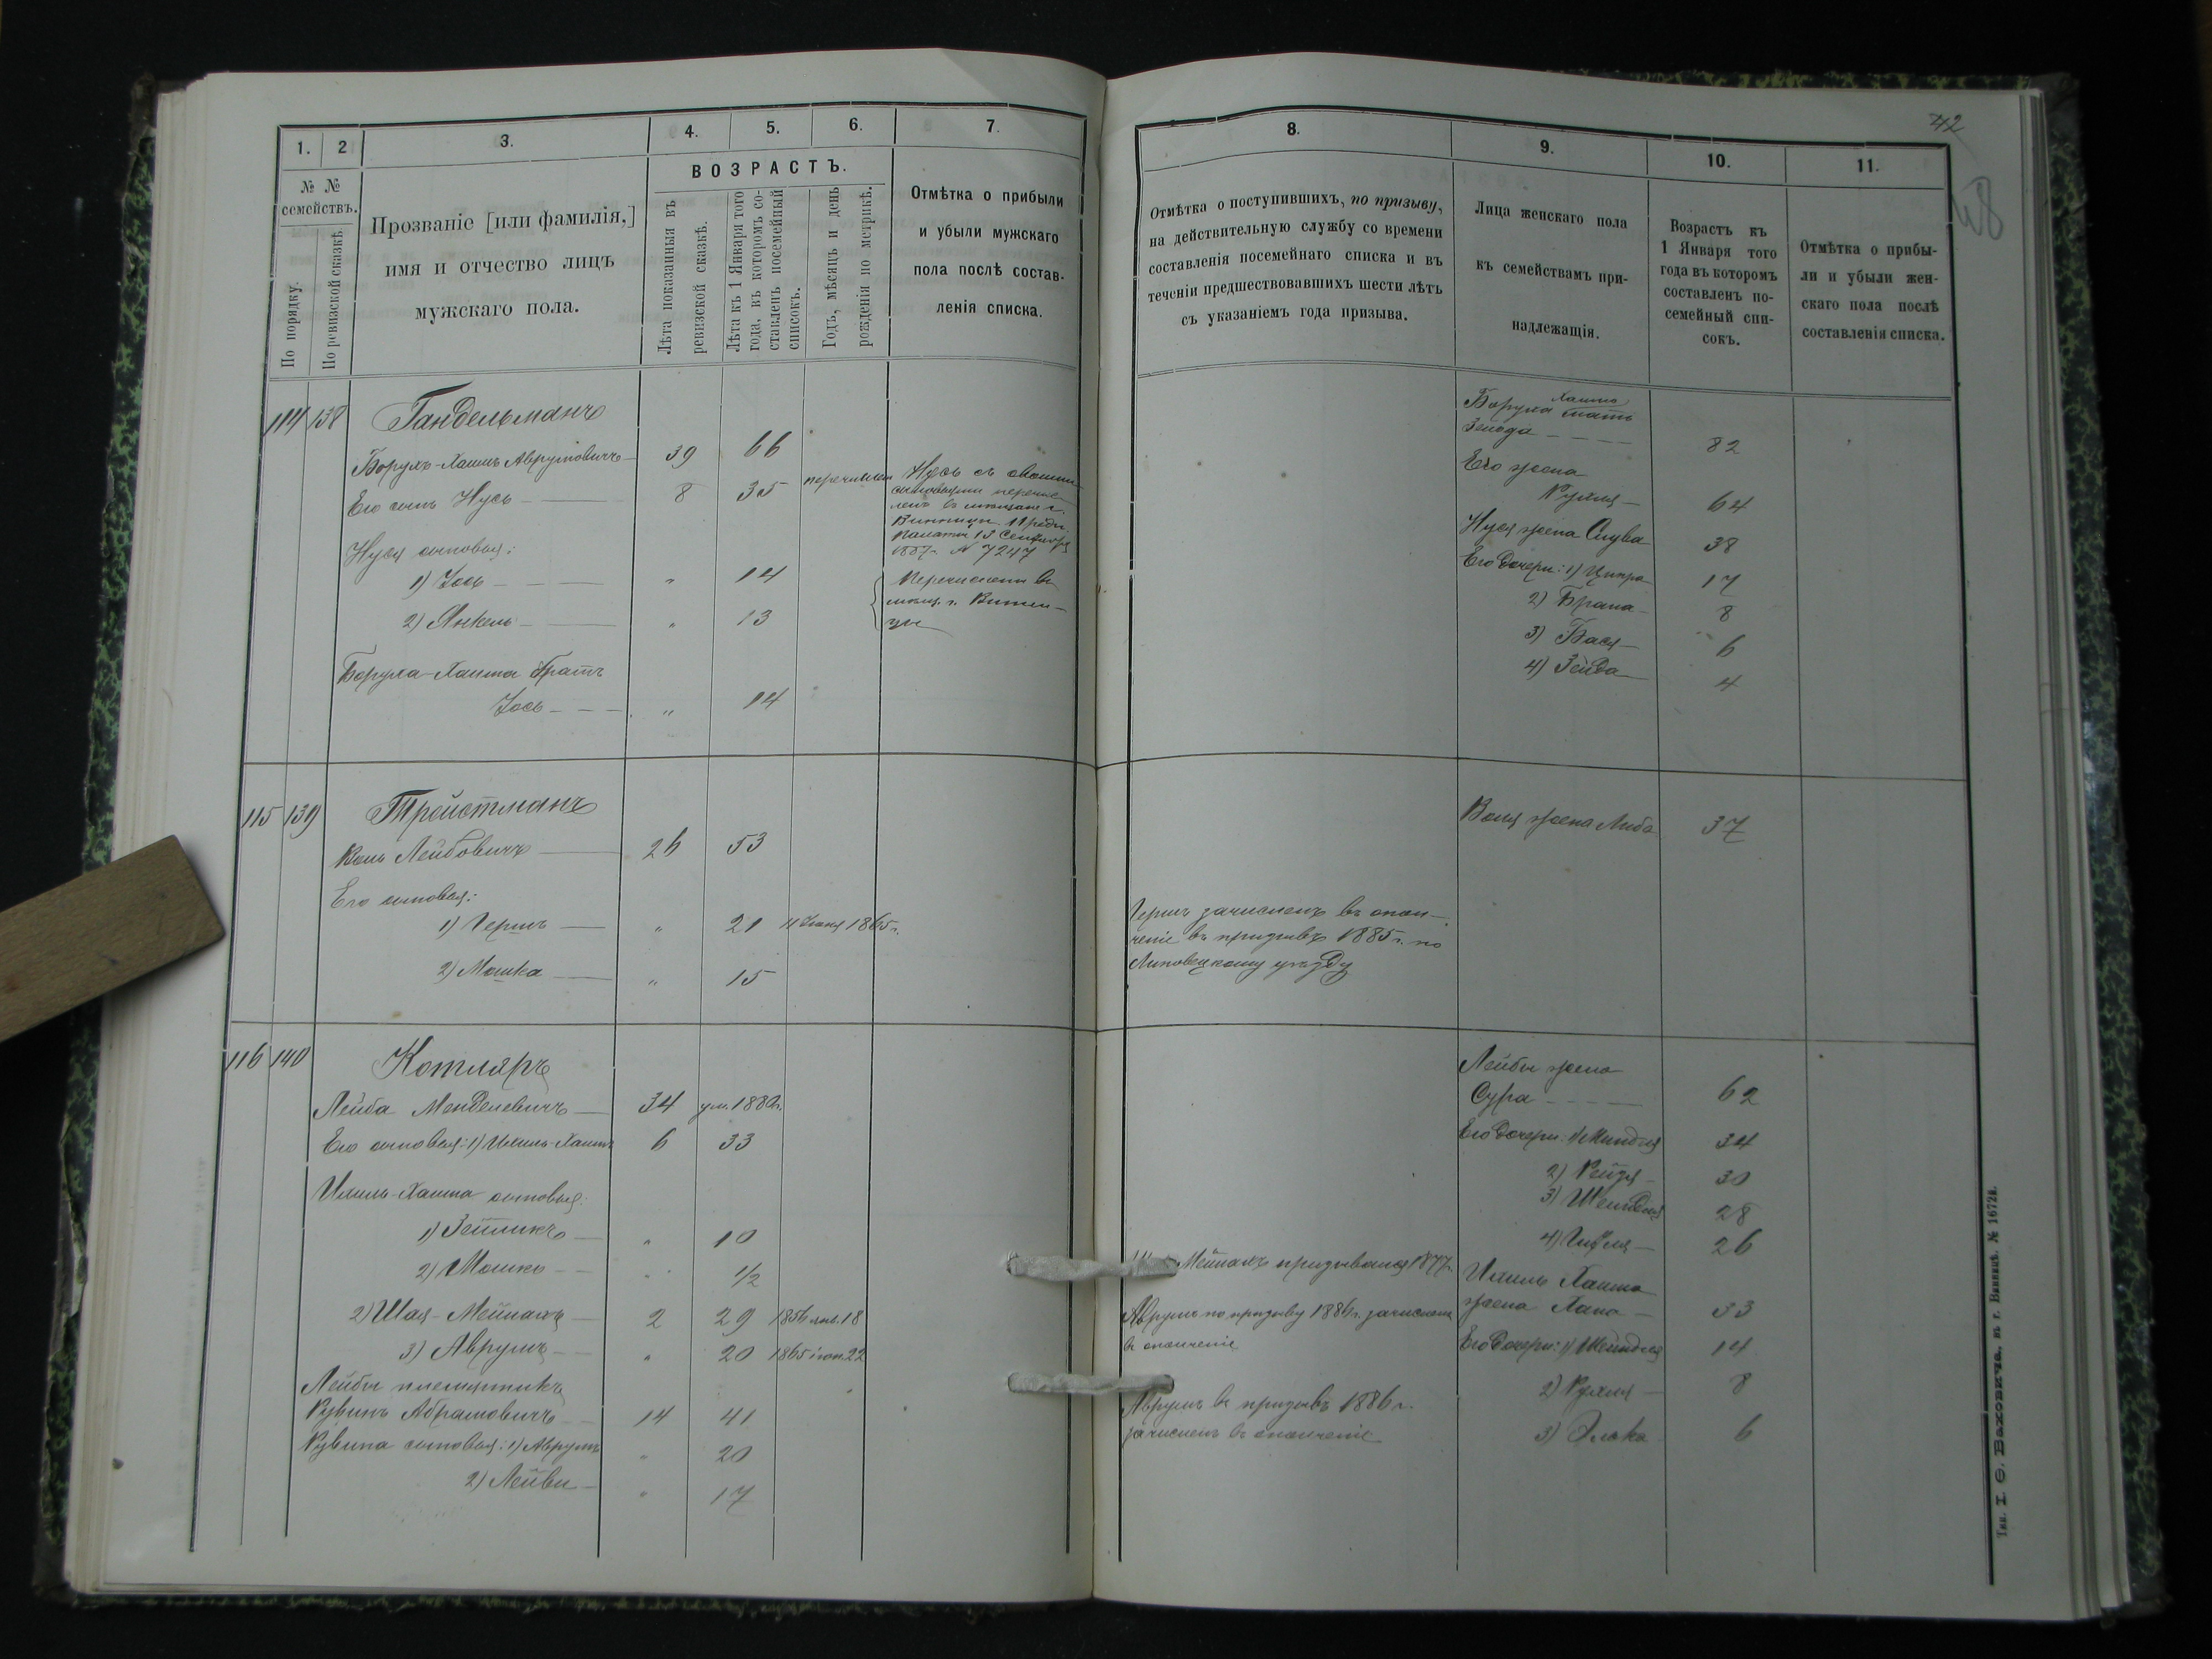 1.
2
3.
4.
5.
6.
7.
№ №
семействъ.
По порядку.
По ревизской сказкѣ
Прозваніе [или фамилія,]
имя и отчество лицъ
мужскаго пола.
ВОЗРАСТЪ.
Лѣта показанныя въ
ревизской сказкѣ.
Лѣта къ 1 Января того
года, въ которомъ со-
ставленъ посемейный
списокъ.
Годъ, мѣсяцъ и день
рожденія по метрикѣ.
Отмѣтка о прибыли
и убыли мужскаго
пола послѣ состав-
ленія списка.
114 138 Гандельманъ
Борухъ-Хаимъ Аврумовичъ 39 66
Его сынъ Нусь 8 35 перечислен
Нуся сыновья:
1) Іось " 14
2) Янкель " 13
Боруха-Хаима братъ
Іось " 14
Нусь съ своими
сыновьями перечис-
ленъ въ мещане г.
Винницы
Палаты 13 Сентября
1887 г. № 7247
Перечислены въ
мещ. г. Винни-
цы
115 139 Тройстманъ
Лейбовичъ 26 53
Его сыновья:
1) Гершъ " 21 1865 г.
2) Мошка " 15
116 140 Котляръ
Лейба Менделевичъ 34 ум. 1880 г.
Его сыновья: 1) Ихиль-Хаимъ 6 33
Ихиль-Хаима сыновья:
1) Зейликъ " 10
2) Мошко " 1/2
2) Шая-Мейнахъ 2 29 1856 18
3) Аврумъ " 20 1865 іюн. 22
Лейбы племянникъ
Рувинъ Абрамовичъ 14 41
Рувина сыновья: 1) Аврумъ " 20
2) Лейви " 17
42
8.
9.
10.
11.
Отмѣтка о поступившихъ, по призыву,
на дѣйствительную службу со времени
составленія посемейнаго списка и въ
теченіи предшествовавшихъ шести лѣтъ
съ указаніемъ года призыва.
Лица женскаго пола
къ семействамъ при-
надлежащія.
Возрастъ къ
1 Января того
года въ которомъ
составленъ по-
семейный спи-
сокъ.
Отмѣтка о прибы-
ли и убыли жен-
скаго пола послѣ
составленія списка.
Хаима
Боруха мать
82
Его жена
Рухля 64
Нуся жена Слува 38
Его дочери: 1) Ципра 17
2) Брана 8
3) Бася 6
4) Зейда 4
жена Либа 37
Гершъ зачисленъ въ опол-
ченіе въ призывъ 1885 г. по
Липовецкому уѣзду
Лейбы жена
Сура 62
Его дочери: 1) Миндля 34
2) Рейзя 30
3) Шейндля 28
4) 26
Мейнахъ призывался 1877 г.
Ихиль Хаима
жена Хана 33
Аврумъ по призыву 1886 г. зачисленъ
въ ополченіе
Его дочери: 1) Шейндля 14
2) Рухля 8
3) Элька 6
Аврумъ въ призывъ 1886 г.
зачисленъ въ ополченіе
Тип. І. Ѳ. Баховича, въ г. Винниц. № 1672в.